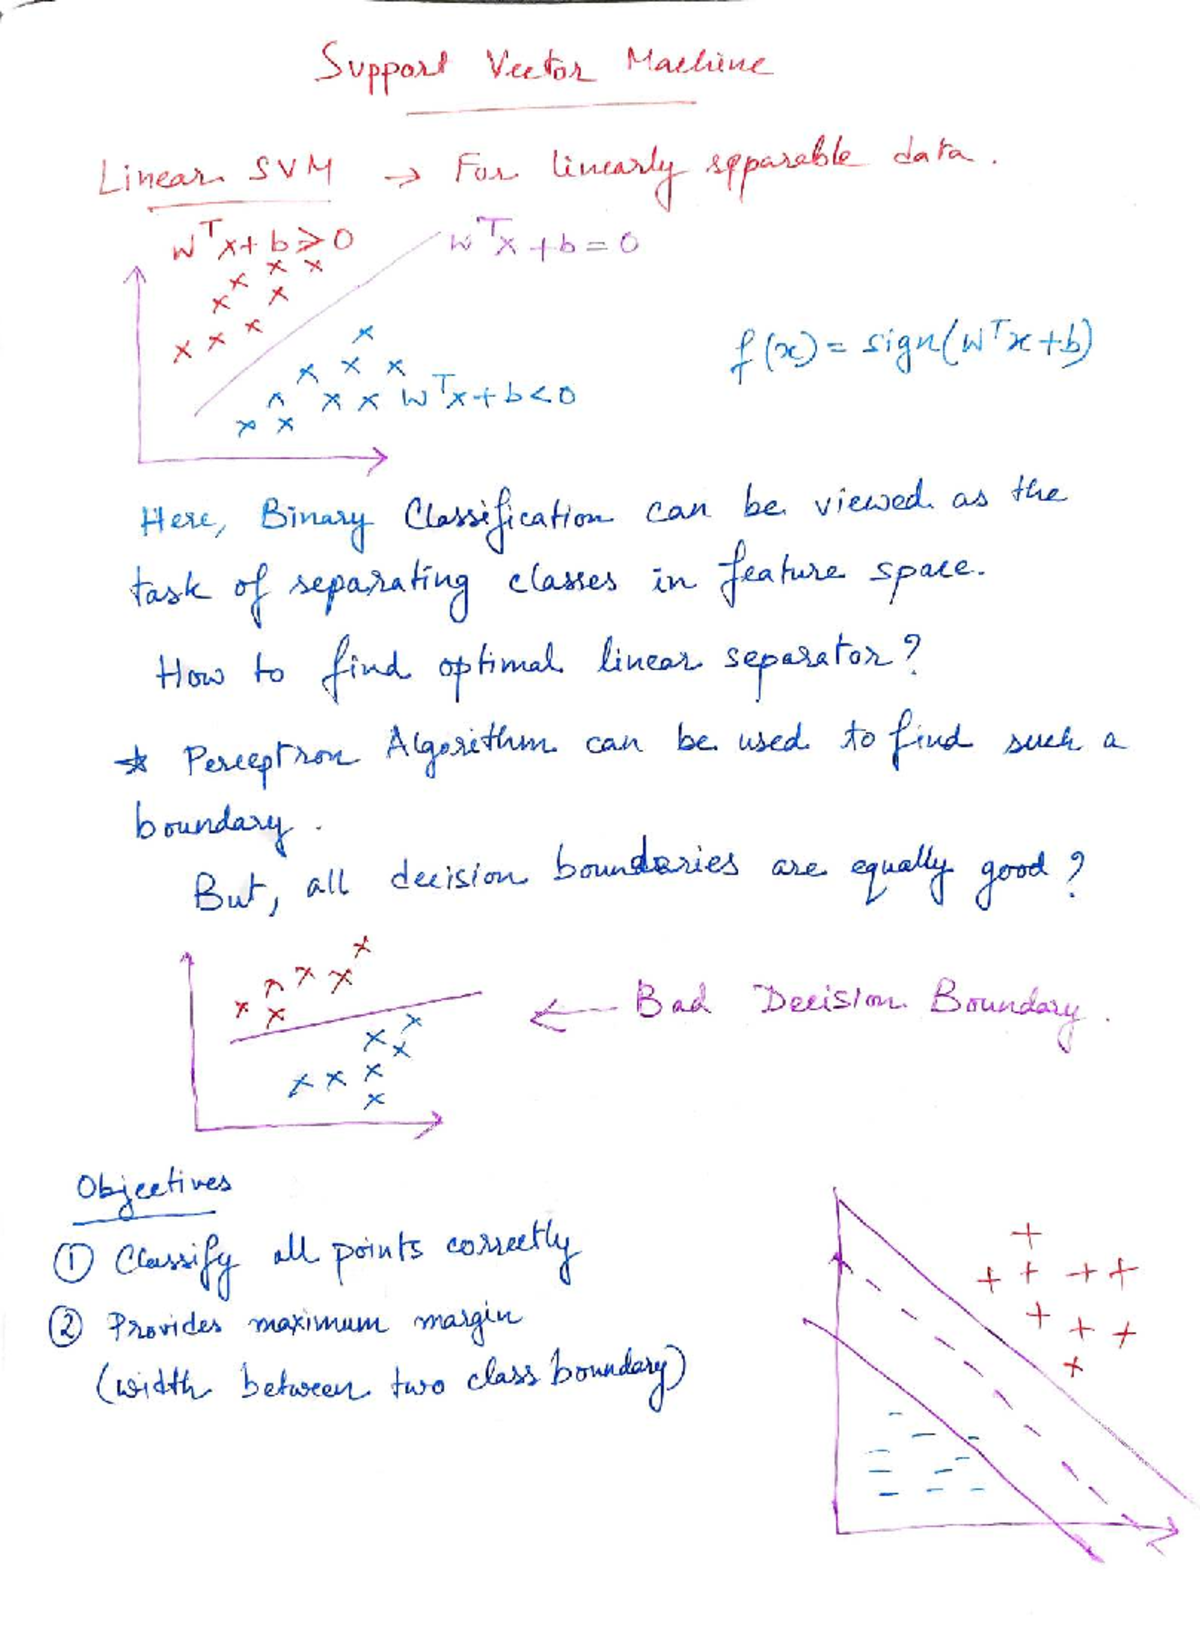 Support Vector Machine
Linear SVM → For linearly spparable data.
w^T x + b > 0
w^T x + b = 0
f(x) = sign(w^T x + b)
w^T x + b < 0
Here, Binary Classification can be viewed as the
task of separating classes in feature space.
How to find optimal linear separator?
* Perceptron Algorithm can be used to find such a
boundary.
But, all decision boundaries are equally good?
← Bad Decision Boundary.
Objectives
① Classify all points correctly
② Provides maximum margin
(width between two class boundary)